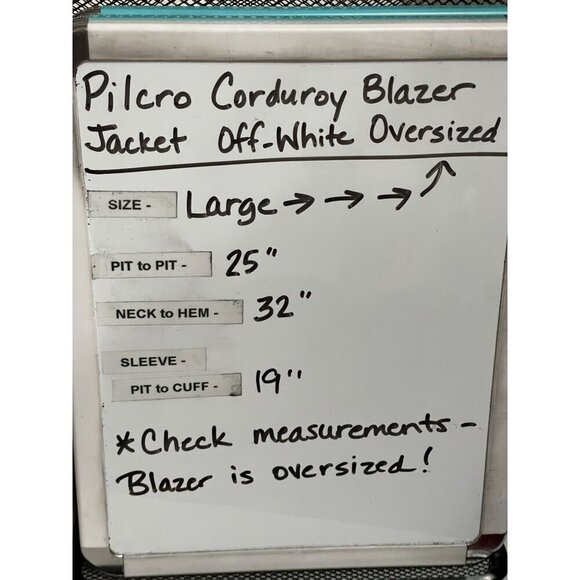 Pilcro Corduroy Blazer
Jacket Off-White Oversized
SIZE - Large → → →
PIT to PIT - 25"
NECK to HEM - 32"
SLEEVE -
PIT to CUFF - 19"
*Check measurements -
Blazer is oversized!